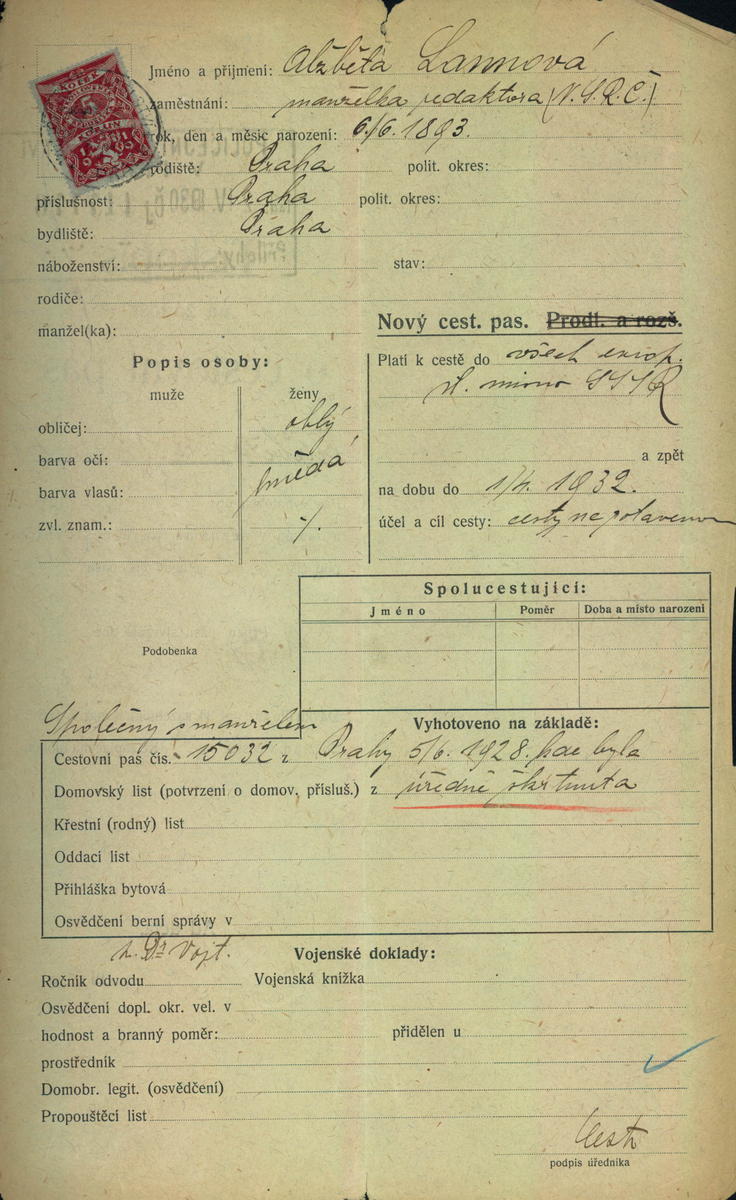 Jméno a příjmení: Alžběta Lannová
zaměstnání: manželka redaktora (N.S.R.Č.)
rok, den a měsíc narození: 6/6. 1893.
rodiště: Praha polit. okres:
příslušnost: Praha polit. okres:
bydliště: Praha
náboženství: stav:
rodiče:
manžel(ka):
Nový cest. pas. Prodl. a rozš.
Popis osoby:
muže ženy
obličej: oblý
barva očí: hnědá
barva vlasů:
zvl. znam.: ·/.
Platí k cestě do všech evrop.
st. mimo SSSR
a zpět
na dobu do 1/4. 1932.
účel a cíl cesty: cesty na
Spolucestující:
Jméno Poměr Doba a místo narození
Podobenka
Společný s manželem
Vyhotoveno na základě:
Cestovní pas čís. 15032 z Prahy 5/6. 1928, kde byla
Domovský list (potvrzení o domov. přísluš.) z úředně škrtnuta
Křestní (rodný) list
Oddací list
Přihláška bytová
Osvědčení berní správy v
Dr Vojt.
Vojenské doklady:
Ročník odvodu Vojenská knížka
Osvědčení dopl. okr. vel. v
hodnost a branný poměr: přidělen u
prostředník
Domobr. legit. (osvědčení)
Propouštěcí list
podpis úředníka